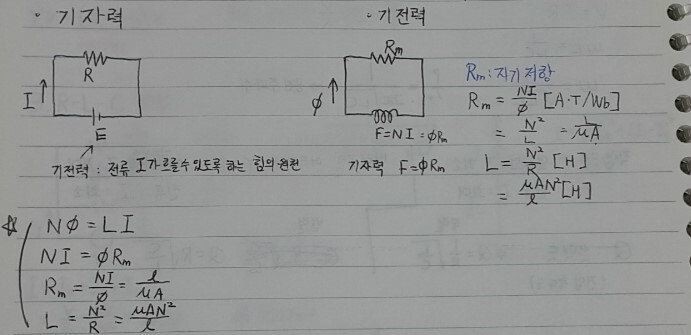 · 기자력
R
I
E
기전력 : 전류 I가 흐를 수 있도록 하는 힘의 원천
· 기전력
Rm
Φ
F=NI=ΦRm
기자력 F=ΦRm
Rm : 자기저항
Rm = NI/Φ [A·T/Wb]
= N²/L = l/μA
L = N²/R [H]
= μAN²/l [H]
☆ NΦ = LI
NI = ΦRm
Rm = NI/Φ = l/μA
L = N²/R = μAN²/l